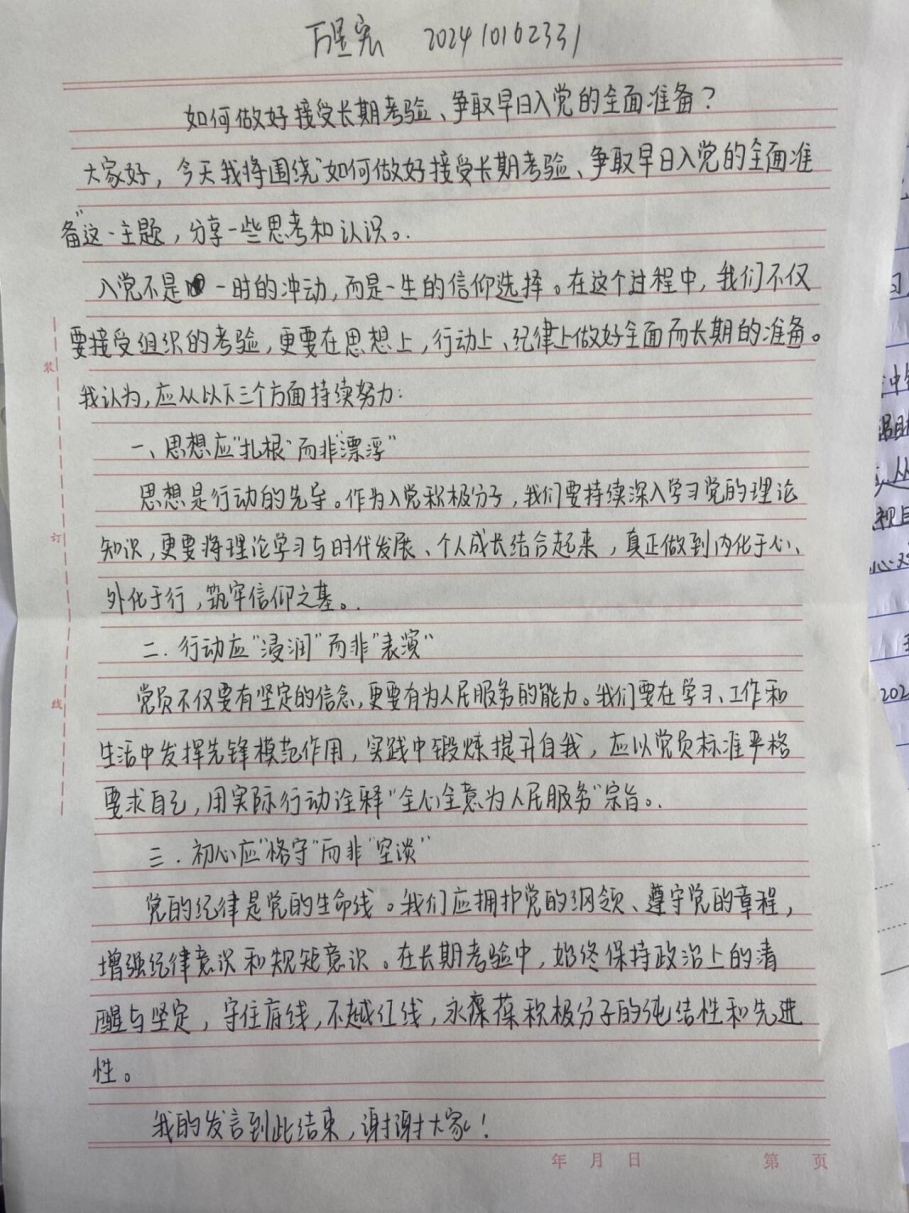 万星宏 202410162331
如何做好接受长期考验、争取早日入党的全面准备？
大家好，今天我将围绕"如何做好接受长期考验、争取早日入党的全面准
备"这一主题，分享一些思考和认识。
入党不是一时的冲动，而是一生的信仰选择。在这个过程中，我们不仅
要接受组织的考验，更要在思想上，行动上、纪律上做好全面而长期的准备。
我认为，应从以下三个方面持续努力：
一、思想应"扎根"而非"漂浮"
思想是行动的先导。作为入党积极分子，我们要持续深入学习党的理论
知识，更要将理论学习与时代发展、个人成长结合起来，真正做到内化于心、
外化于行，筑牢信仰之基。
二．行动应"浸润"而非"表演"
党员不仅要有坚定的信念，更要有为人民服务的能力。我们要在学习、工作和
生活中发挥先锋模范作用，实践中锻炼提升自我，应以党员标准严格
要求自己，用实际行动诠释"全心全意为人民服务"宗旨。
三．初心应"恪守"而非"空谈"
党的纪律是党的生命线。我们应拥护党的纲领、遵守党的章程，
增强纪律意识和规矩意识。在长期考验中，始终保持政治上的清
醒与坚定，守住底线，不越红线，永葆积极分子的纯洁性和先进
性。
我的发言到此结束，谢谢大家！
装
订
线
年 月 日 第 页